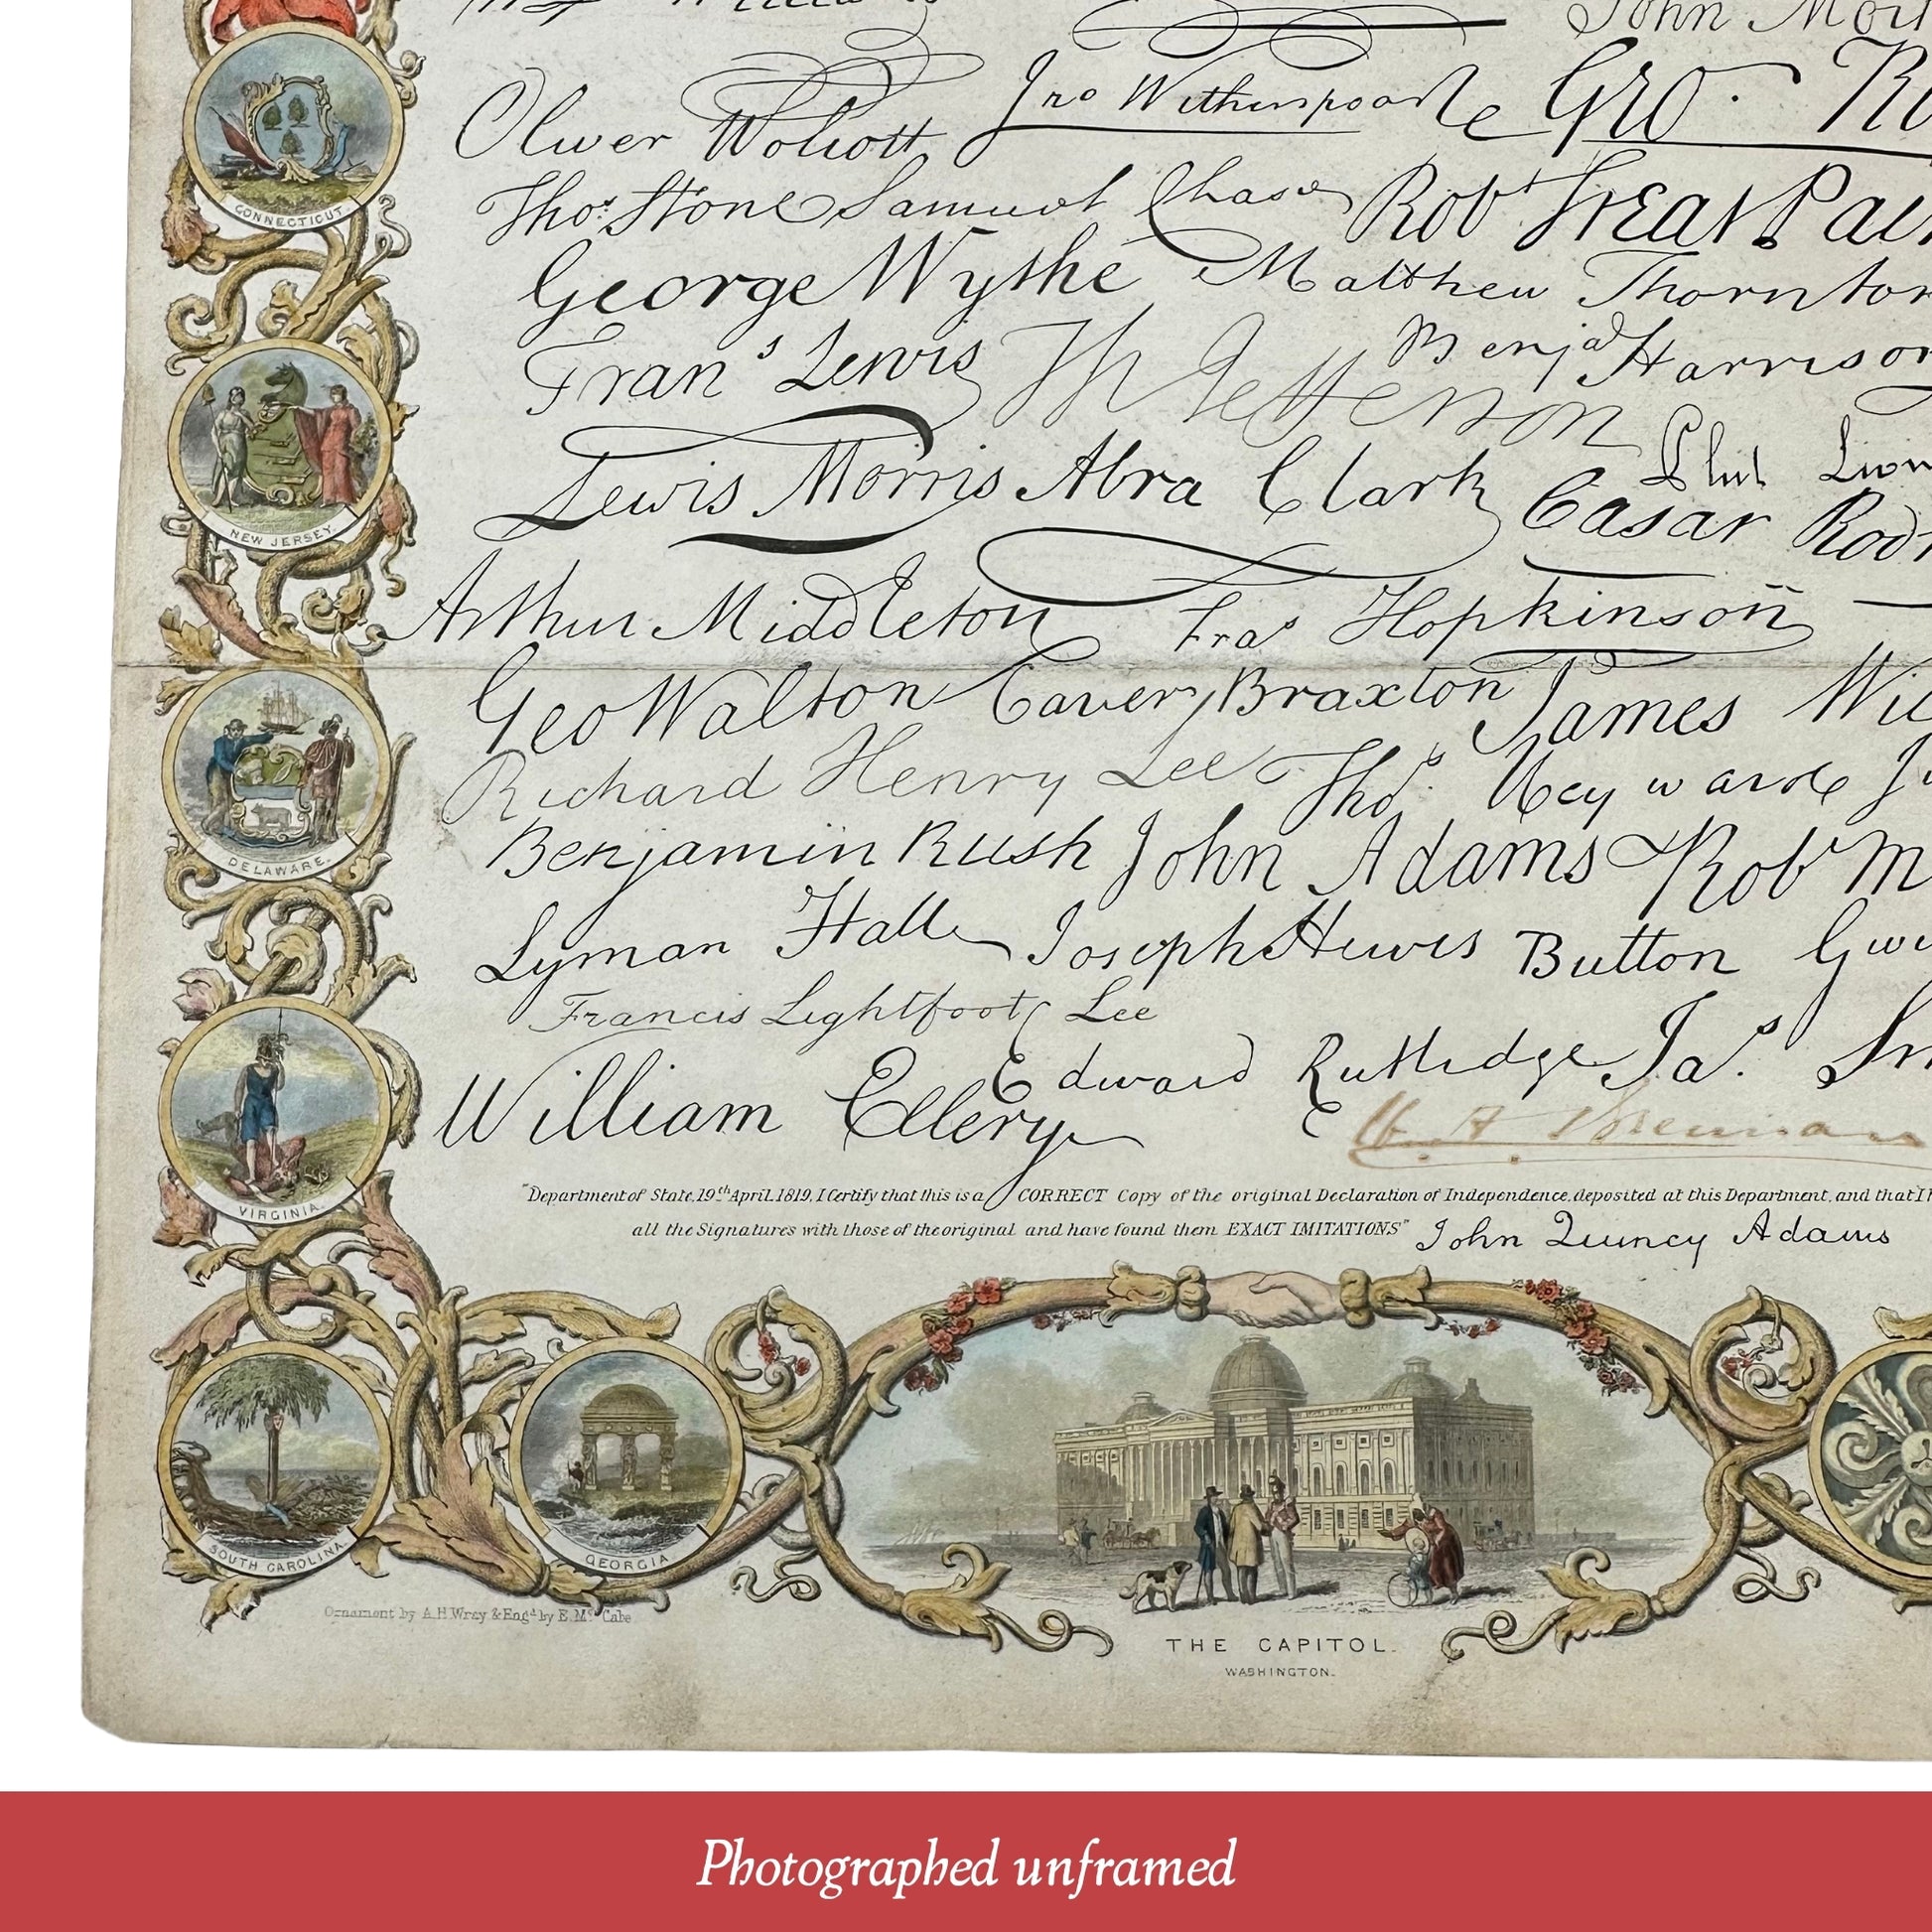 John
Oliver Wolcott Jno Witherspoon Geo.
Thos. Stone Samuel Chase Robt Treat
George Wythe Matthew Thornton
Frans Lewis Th Jefferson Benja Harrison
Lewis Morris Abra Clark Phil
Casar
Arthur Middleton Fras Hopkinson
Geo Walton Carter Braxton James
Richard Henry Lee Thos. Heyward
Benjamin Rush John Adams Robt
Lyman Hall Joseph Hewes Button
Francis Lightfoot Lee
William Ellery Edward Rutledge Jas.
"Department of State, 19th April 1819, I Certify that this is a CORRECT Copy of the original Declaration of Independence, deposited at this Department, and that I
all the Signatures with those of the original and have found them EXACT IMITATIONS" John Quincy Adams
CONNECTICUT.
NEW JERSEY.
DELAWARE.
VIRGINIA.
SOUTH CAROLINA.
GEORGIA
Ornament by A.H. Wray & Engd. by E. Mc. Cabe
THE CAPITOL.
WASHINGTON.
Photographed unframed